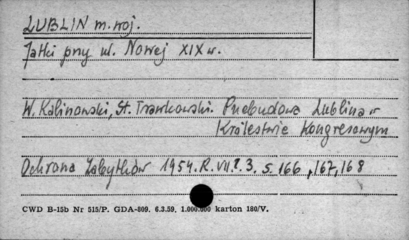 LUBLIN m. woj.
Jatki przy ul. Nowej XIX w.
W. Kalinowski, St. Trawkowski. Przebudowa Lublina w
Królestwie Kongresowym
Ochrona Zabytków 1954. R. VII. z. 3. s. 166, 167, 168
CWD B-15b Nr 515/P. GDA-809. 6.3.59. 1.000.000 karton 180/V.